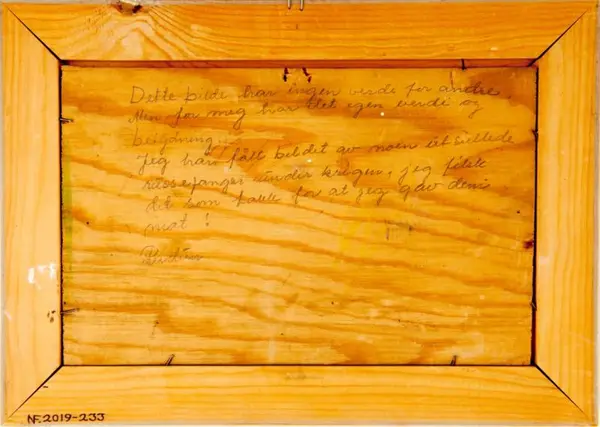 Dette bilde har ingen verde for andre
Men for meg har det egen verdi og
betydning.
Jeg har fått bildet av noen utsultede
russefanger under krigen, jeg fikk
det som takk for at jeg gav dem
mat!
NF.2019-233